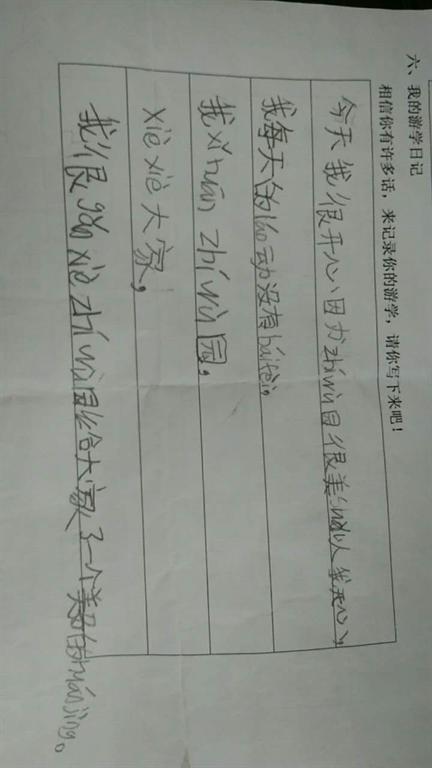 六、我的游学日记
相信你有许多话，来记录你的游学，请你写下来吧！
今天我很开心，因为zhíwù园很美，suǒ以我开心，
我每天的láo动没有báifèi。
我xǐhuān zhíwù园，
xièxiè大家，
我很gǎnxiè zhíwù园给大家了一个美好的huánjìng。